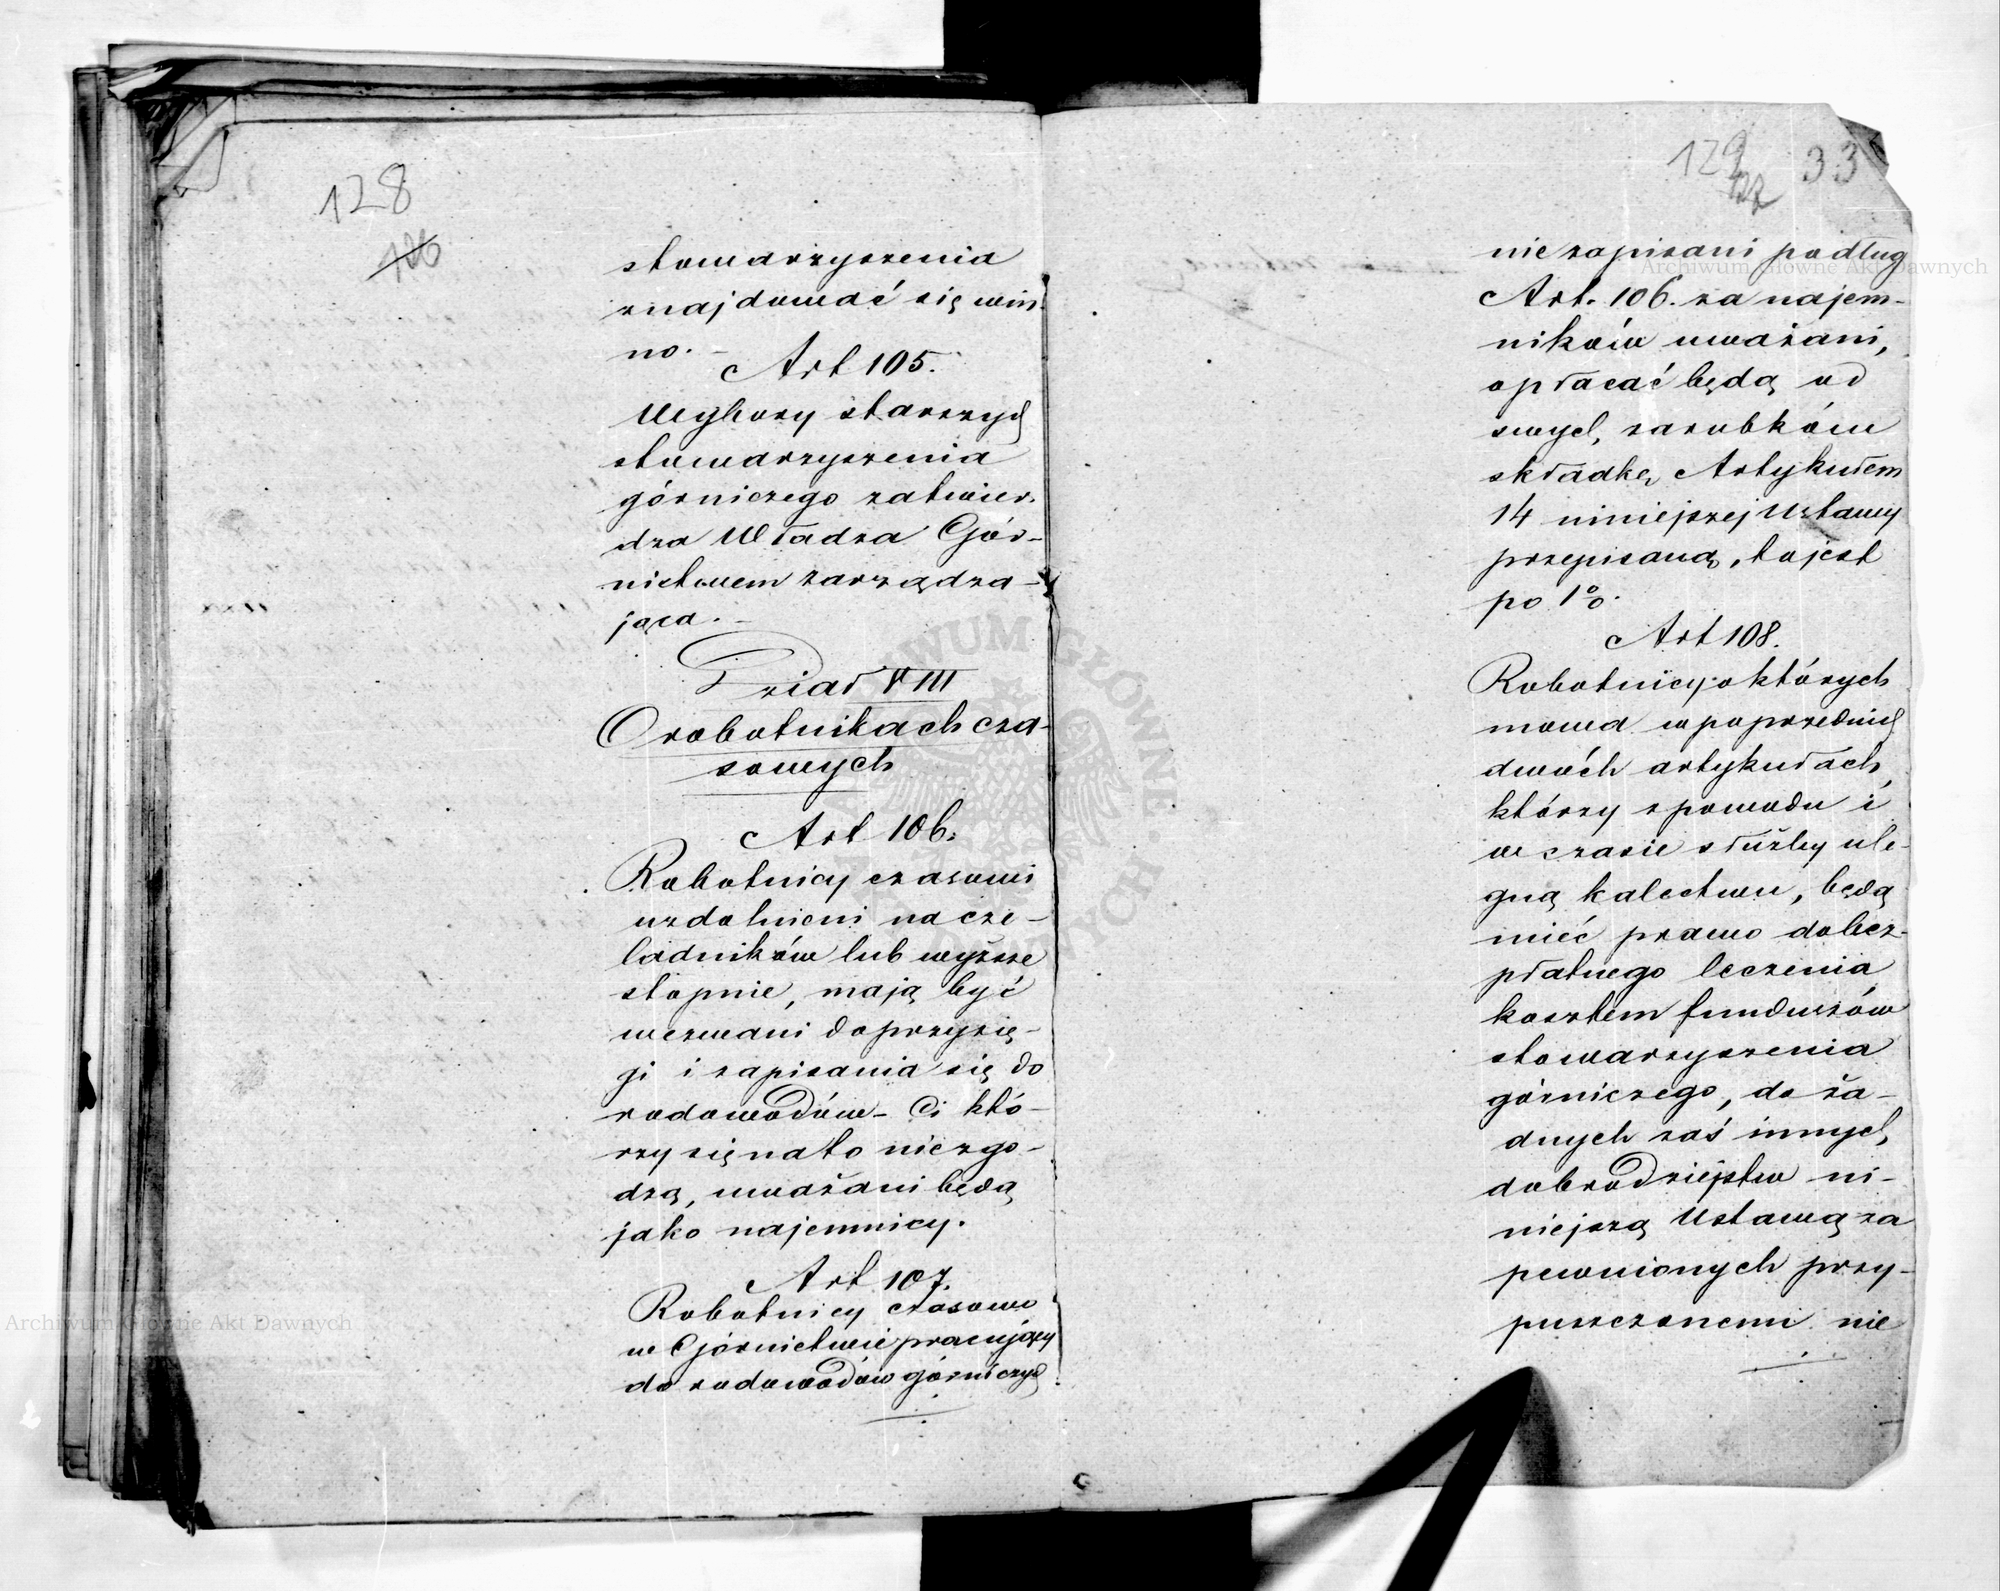 128
106
stowarzyszenia
znajdować się win-
no. -
Art 105.
Wybory starszych
stowarzyszenia
górniczego zatwier-
dza Władza Gór-
nictwem zarządza-
jąca. -
Dział VIII
O robotnikach cza-
sowych
Art 106.
Robotnicy czasowi
uzdolnieni na cze-
ladników lub wyższe
stopnie, mają być
wezwani do przysię-
gi i zapisania się do
rodowodów - Ci któ-
rzy się na to nie zgo-
dzą, uważani będą
jako najemnicy.
Art 107.
Robotnicy czasowo
w Górnictwie pracujący
do rodowodów górniczych
129 33
nie zapisani podług
Art. 106. za najem-
ników uważani,
opłacać będą od
swych zarobków
składkę Artykułem
14 niniejszej Ustawy
przepisaną, to jest
po 1%.
Art 108.
Robotnicy o których
mowa w poprzednich
dwóch artykułach,
którzy z powodu i
w czasie służby ule-
gną kalectwu, będą
mieć prawo do bez-
płatnego leczenia
kosztem funduszów
stowarzyszenia
górniczego, do ża-
dnych zaś innych
dobrodziejstw ni-
niejszą Ustawą za
pewnionych przy-
puszczonemi nie
Archiwum Główne Akt Dawnych
Archiwum Główne Akt Dawnych
ARCHIWUM GŁÓWNE AKT DAWNYCH